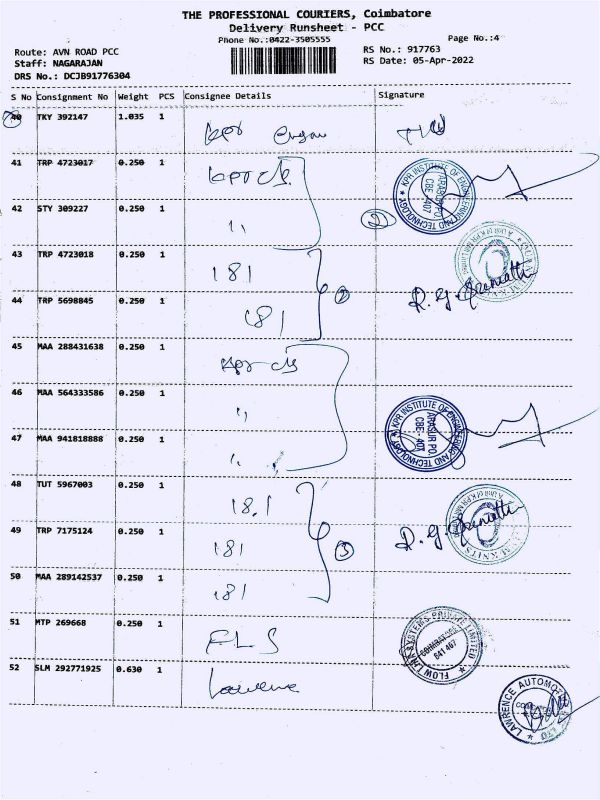 THE PROFESSIONAL COURIERS, Coimbatore
Delivery Runsheet - PCC
Phone No.:0422-3505555
Page No.:4
Route: AVN ROAD PCC
RS No.: 917763
Staff: NAGARAJAN
RS Date: 05-Apr-2022
DRS No.: DCJB91776304
S No Consignment No Weight PCS Consignee Details Signature
40 TKY 392147 1.035 1
41 TRP 4723017 0.250 1
KPR INSTITUTE OF ENGINEERING AND TECHNOLOGY
ARASUR PO.
CBE - 407
42 STY 309227 0.250 1 " 2
43 TRP 4723018 0.250 1 181
44 TRP 5698845 0.250 1 181
45 MAA 288431638 0.250 1
46 MAA 564333586 0.250 1 "
KPR INSTITUTE OF ENGINEERING AND TECHNOLOGY
ARASUR PO.
CBE - 407
47 MAA 941818888 0.250 1 "
48 TUT 5967003 0.250 1 181
49 TRP 7175124 0.250 1 181 3
50 MAA 289142537 0.250 1 181
51 MTP 269668 0.250 1 FLS
FLOW LINK SYSTEMS PRIVATE LIMITED
COIMBATORE
641 467
52 SLM 292771925 0.630 1 Lawrence
LAWRENCE